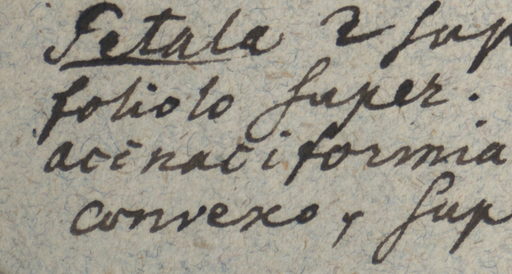 Petala 2 sup
foliolo super.
acinaciformia
convexo, sup